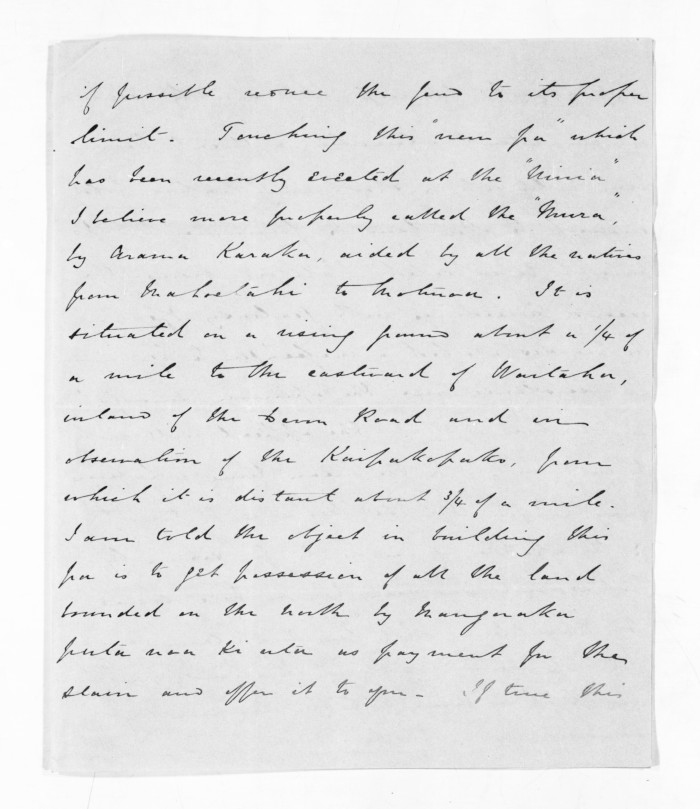 if possible reduce the feud to its proper
limit. Touching this "new pa" which
has been recently erected at the "Ninia"
I believe more properly called the "Mura",
by Arama Karaka, aided by all the natives
from Mahoetahi to Motunoa. It is
situated on a rising ground about a 1/4 of
a mile to the eastward of Waitaha,
inland of the Devon Road and in
observation of the Kaipakopako, from
which it is distant about 3/4 of a mile.
I am told the object in building this
pa is to get possession of all the land
bounded on the north by Mangoraka
puta noa ki uta as payment for the
slain and offer it to you - If true this